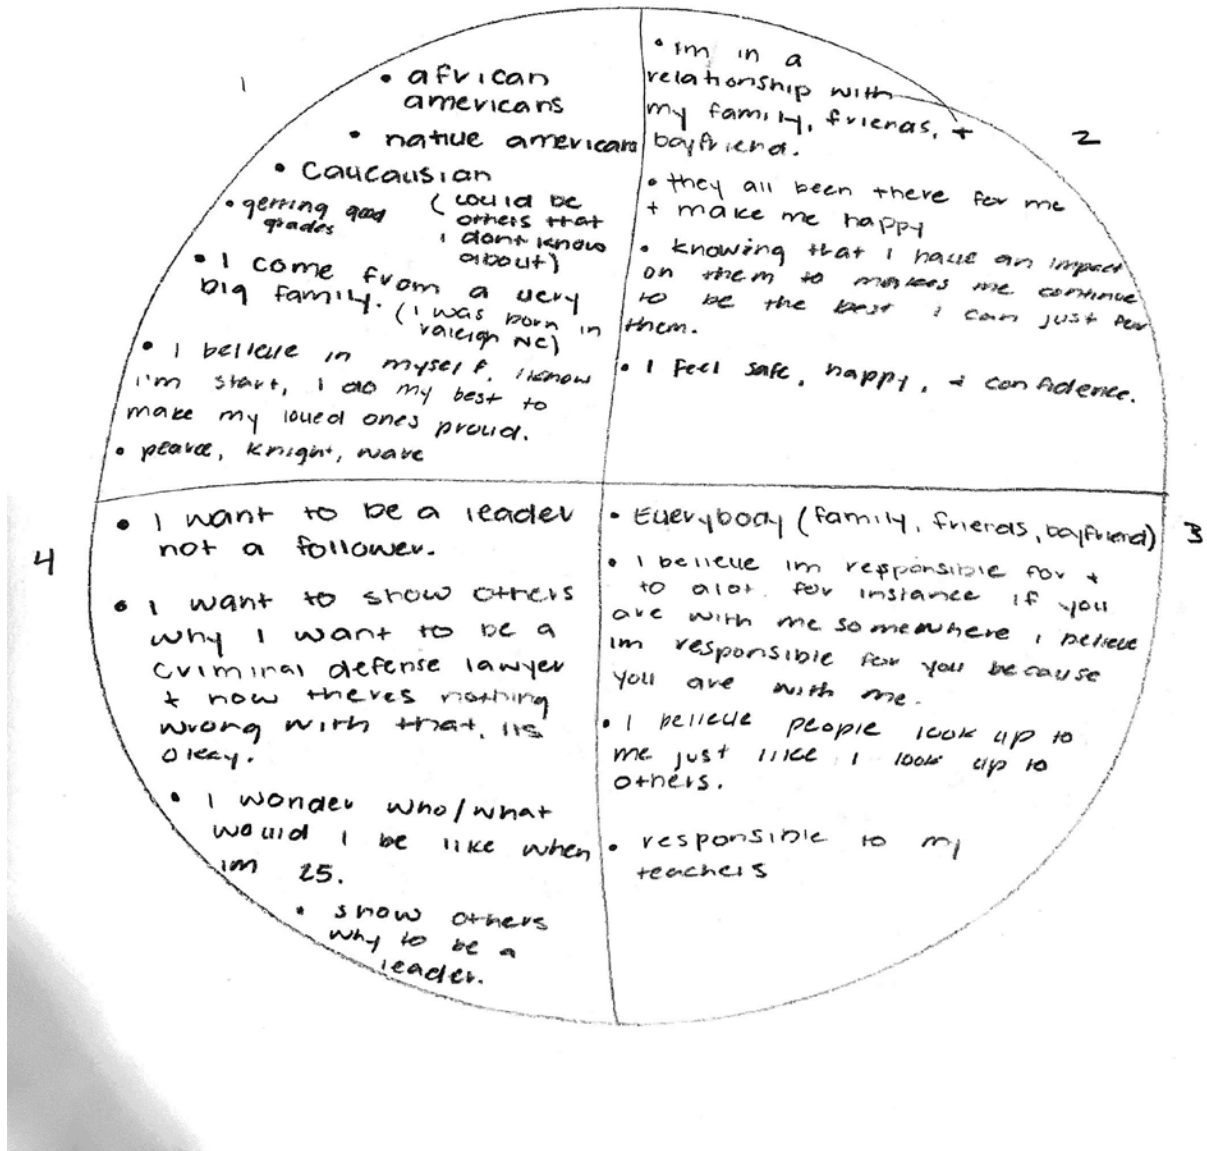 1
• african
americans
• native american
• Caucausian
• getting good
grades
( could be
others that
i dont know
about)
• I come from a very
big family.
(i was born in
raleigh NC)
• I believe in myself. i know
i'm start, I do my best to
make my loved ones proud.
• pearce, knight, ware
2
• Im in a
relationship with
my family, friends, +
boyfriend.
• they all been there for me
+ make me happy
• knowing that I have an impact
on them to makes me continue
to be the best i can just for
them.
• I feel safe, happy, + confidence.
3
• Everybody (family, friends, boyfriend)
• I believe im responsible for +
to alot. for instance if you
are with me somewhere i believe
im responsible for you because
you are with me.
• I believe people look up to
me just like i look up to
others.
• responsible to my
teachers
4
• I want to be a leader
not a follower.
• I want to show others
why I want to be a
criminal defense lawyer
+ how theres nothing
wrong with that, its
okay.
• I wonder who/what
would i be like when
im 25.
• show others
why to be a
leader.